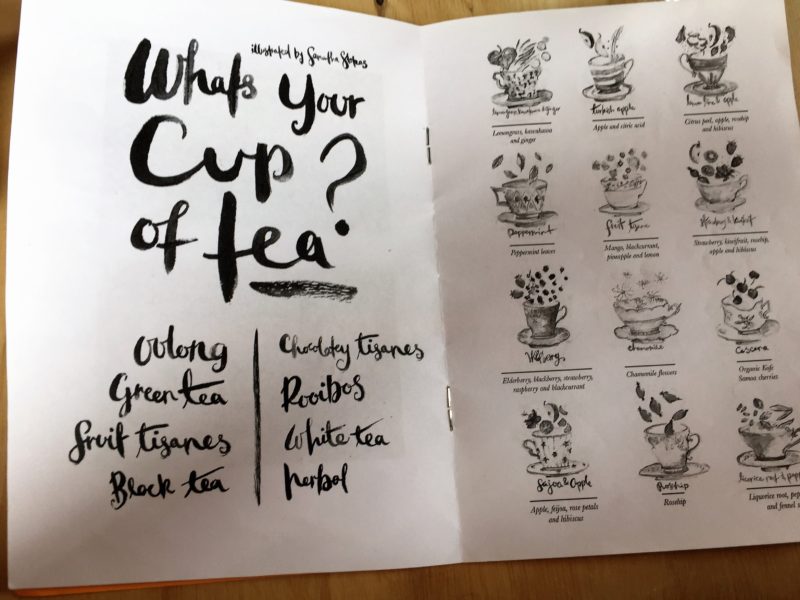 illustrated by Samantha
What's Your
Cup
of tea?
Oolong
Green tea
fruit tisanes
Black tea
Chocolatey tisanes
Rooibos
White tea
herbal
Lemongrass, kawakawa & ginger
Lemongrass, kawakawa
and ginger
Turkish apple
Apple and citric acid
apple
Citrus peel, apple, rosehip
and hibiscus
Peppermint
Peppermint leaves
fruit tisane
Mango, blackcurrant,
pineapple and lemon
Strawberry & kiwifruit
Strawberry, kiwifruit, rosehip,
apple and hibiscus
Elderberry, blackberry, strawberry,
raspberry and blackcurrant
Chamomile
Chamomile flowers
Cascara
Organic Kofe
Samoa cherries
feijoa & Apple
Apple, feijoa, rose petals
and hibiscus
Rosehip
Rosehip
licorice root &
Liquorice root,
and fennel